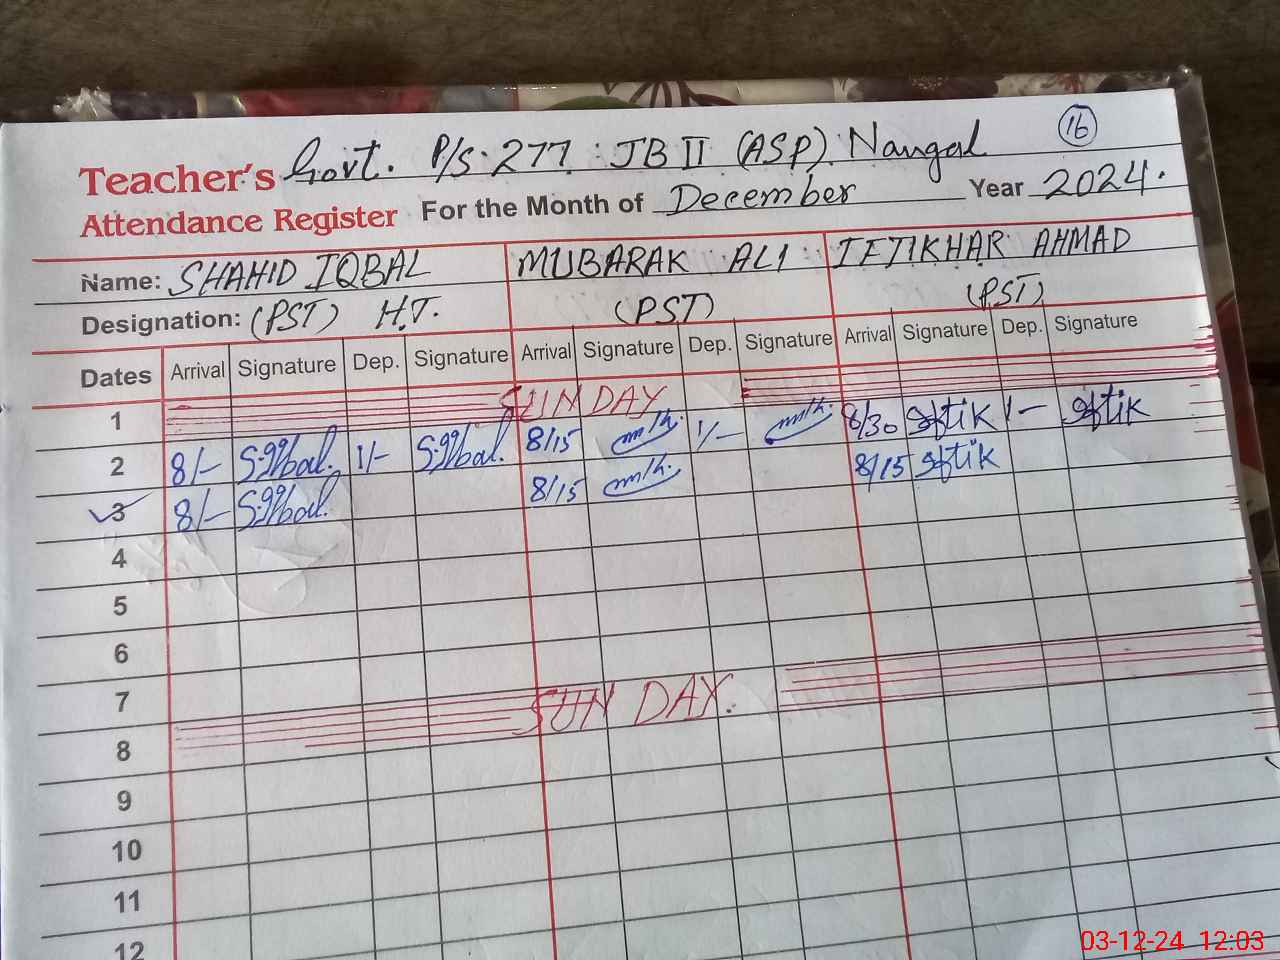 Teacher's Govt. P/S. 277 : JB II (ASP). Nangal 16
Attendance Register For the Month of December Year 2024.
Name: SHAHID IQBAL MUBARAK ALI IFTIKHAR AHMAD
Designation: (PST) H.T. (PST) (PST)
Dates Arrival Signature Dep. Signature Arrival Signature Dep. Signature Arrival Signature Dep. Signature
1 SUNDAY
2 8/- S.Iqbal. 1/- S.Iqbal. 8/15 1/- 8/30 Iftik 1- Iftik
3 8/- S.Iqbal. 8/15 8/15 Iftik
4
5
6
7
8 SUN DAY.
9
10
11
12
03-12-24 12:03